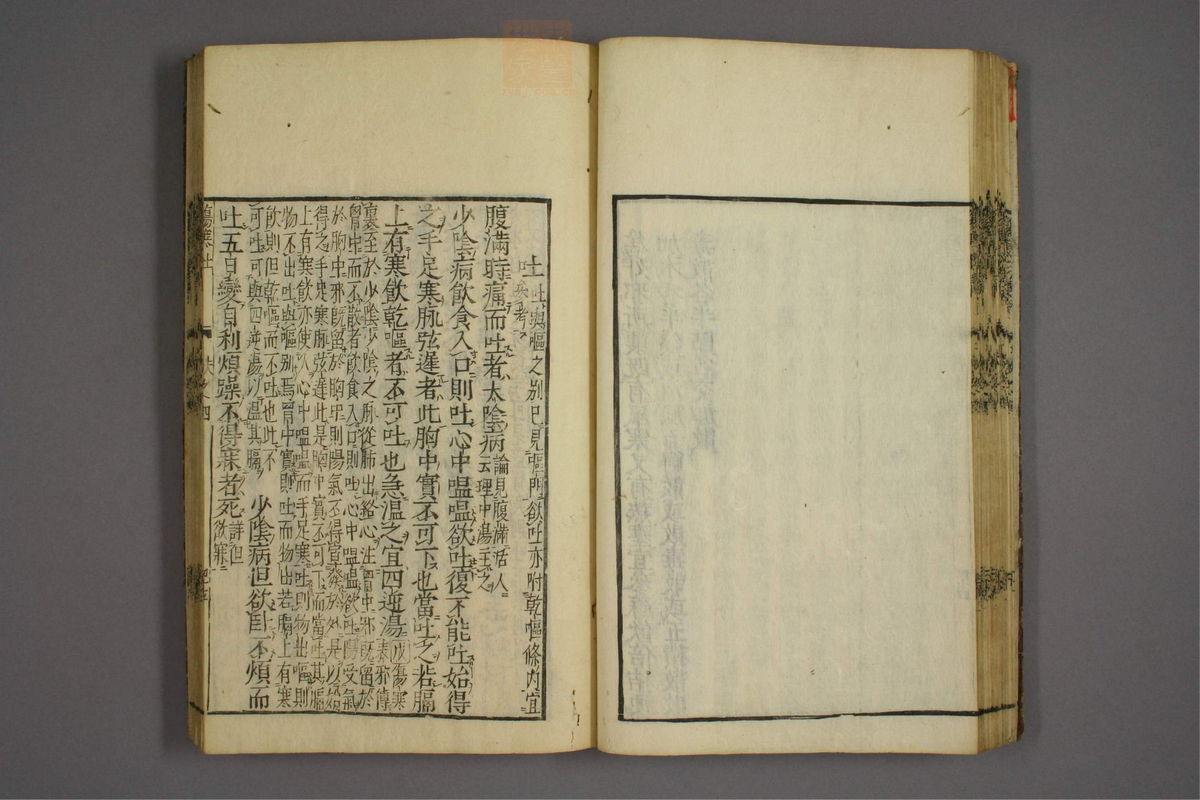 吐 吐與嘔之別已見嘔門欲吐亦附乾嘔條內宜
參考
腹滿時痛而吐者太陰病 論見腹滿活人
云理中湯主之
少陰病飲食入口則吐心中嗢嗢欲吐復不能吐始得
之手足寒脉弦遲者此胸中實不可下也當吐之若膈
上有寒飲乾嘔者不可吐也急溫之宜四逆湯 成傷寒
表邪傳
裏至於少陰少陰之脉從肺出絡心注胷中邪旣留於
胷中而不散者飲食入口則吐心中嗢嗢欲吐陽受氣
於胸中邪旣留於胸中則陽氣不得宣發於外是以始
得之手足寒脉弦遲此是胸中實不可下而當吐其膈
上有寒飲亦使人心中嗢嗢而手足寒吐則物出嘔則
物不出吐與嘔别焉胷中實則吐而物出若膈上有寒
飲則但乾嘔而不吐也此不
可吐可與四逆湯以溫其膈
少陰病但欲臥不煩而
吐五
自利煩躁不得寐者死 詳但
欲寐
傷寒吐
帙之四